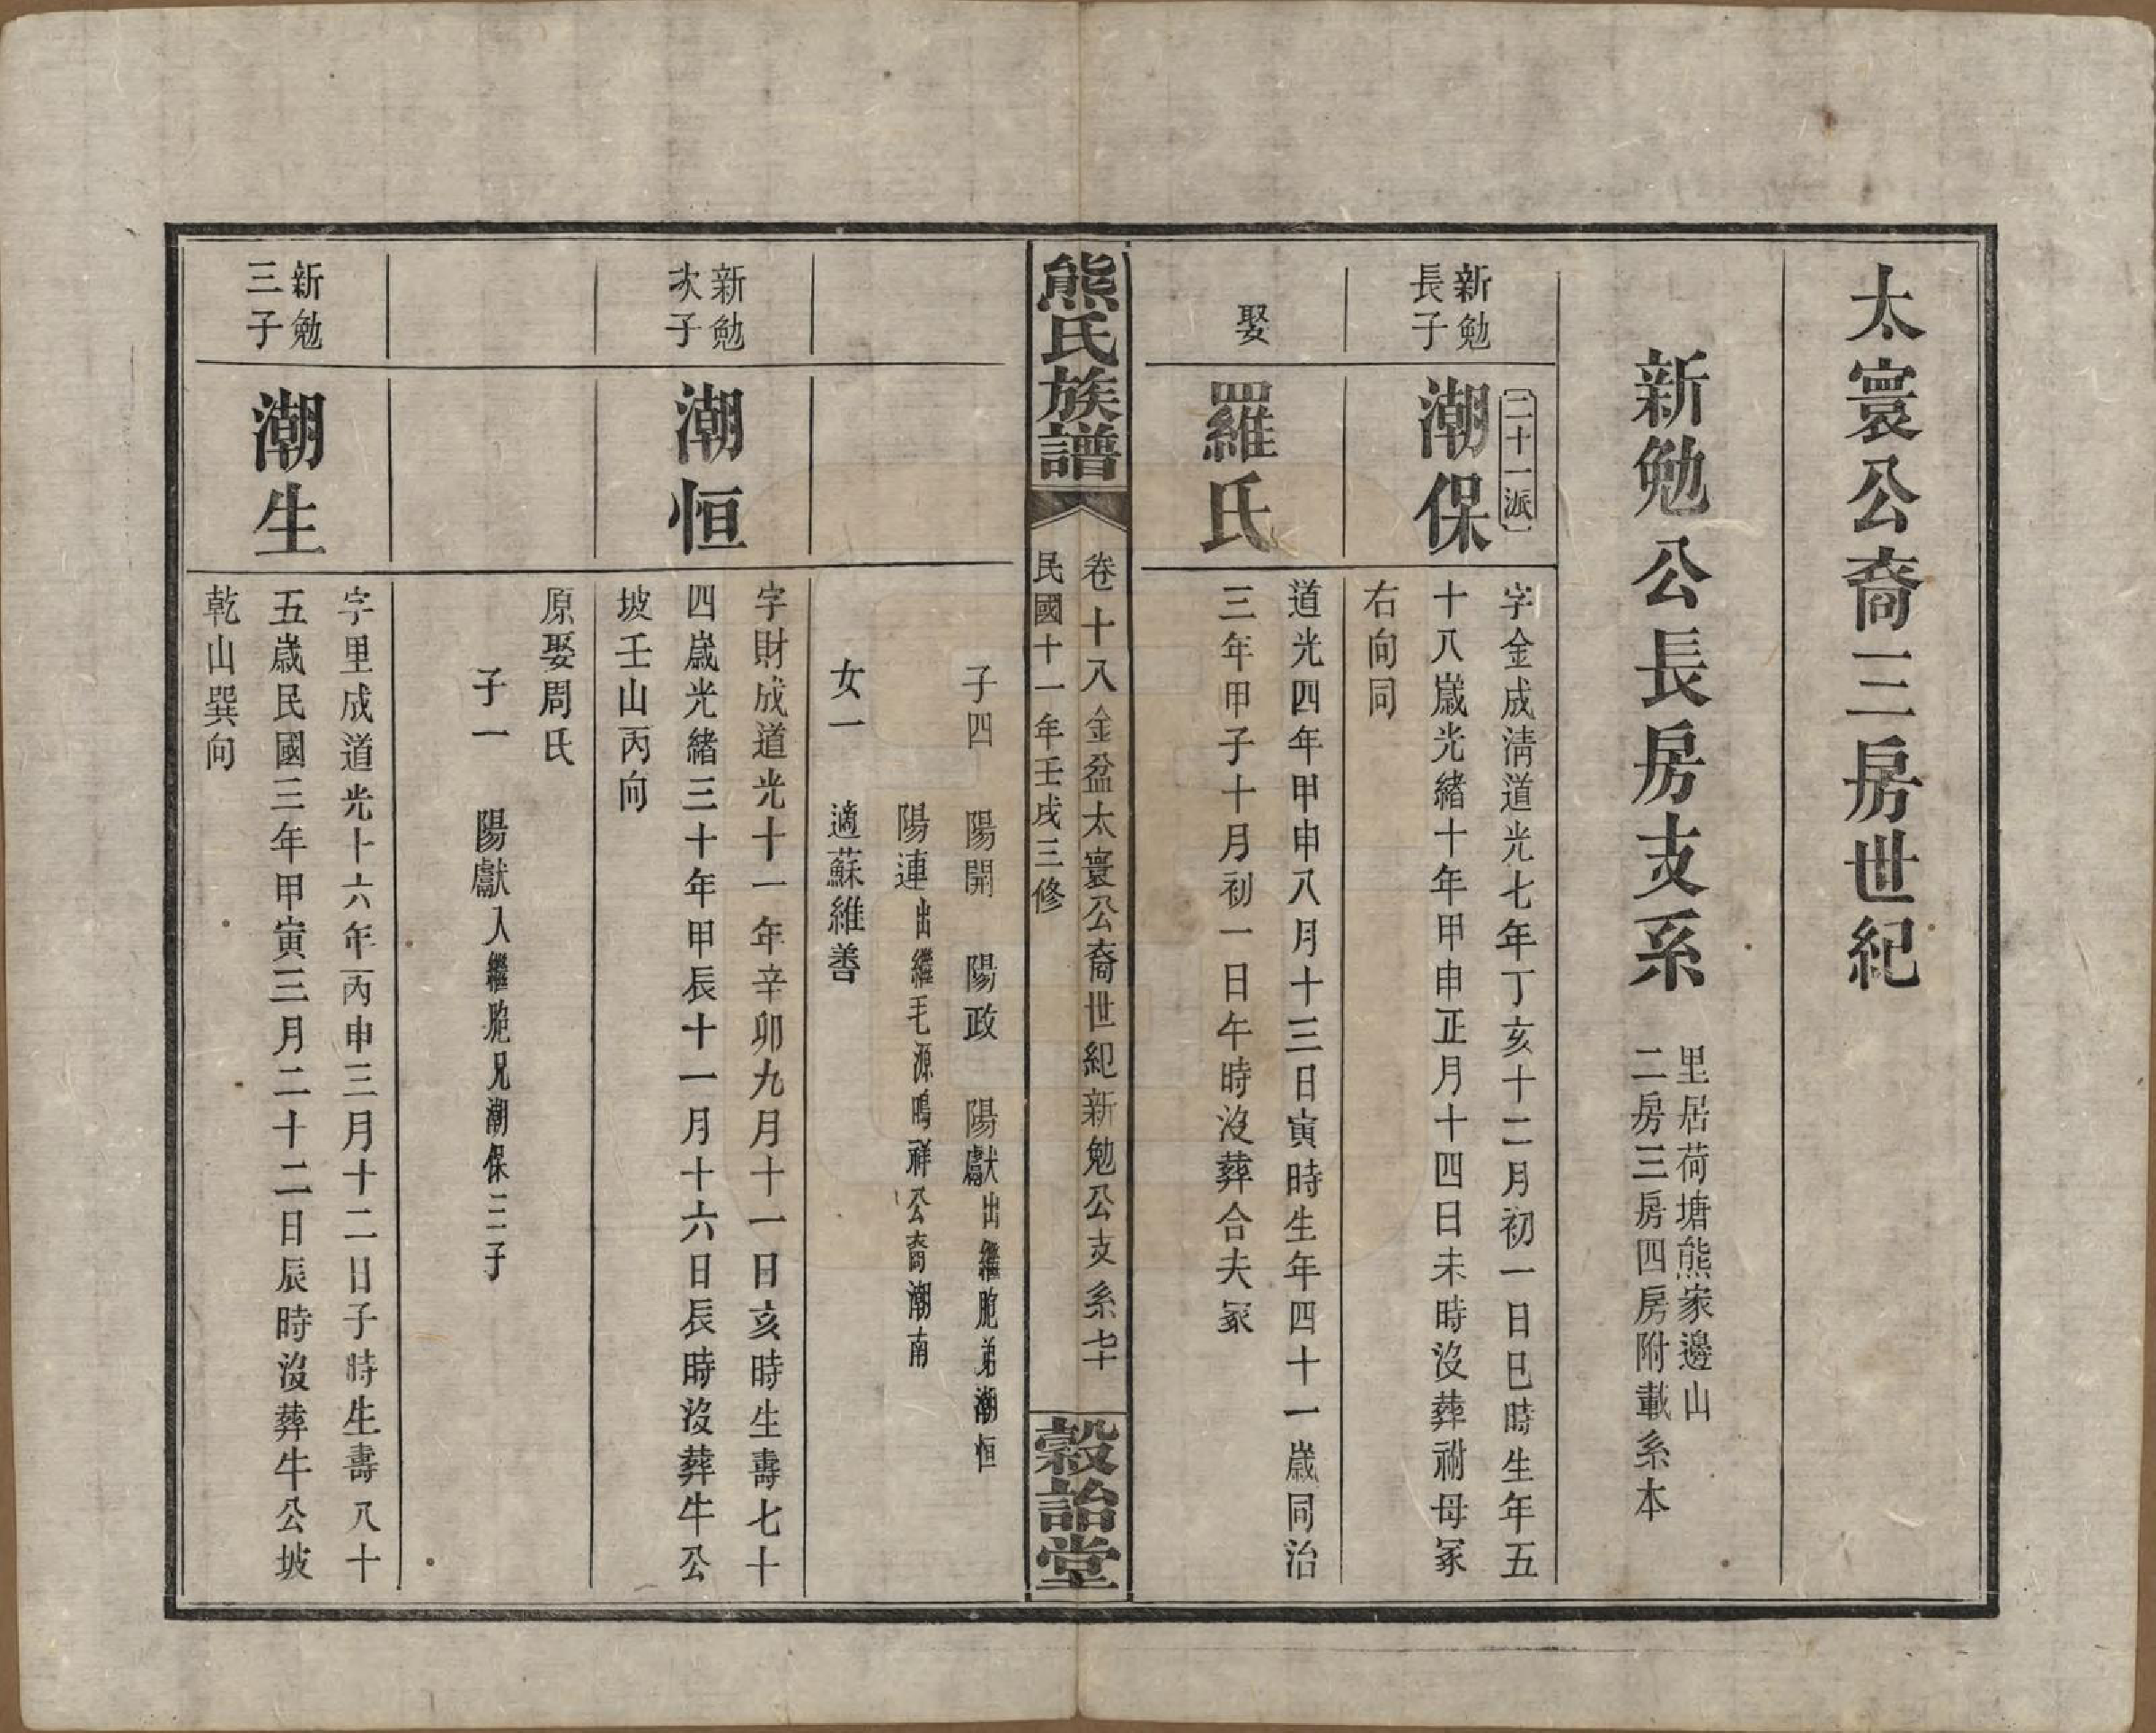 太寰公裔三房世紀
新勉公長房支系
里居荷塘熊家邊山
二房三房四房附載系本
新勉
長子
二十一派
潮保
字金成清道光七年丁亥十二月初一日巳時生年五
十八歲光緒十年甲申正月十四日未時沒葬祔母冢
右向同
娶
羅氏
道光四年甲申八月十三日寅時生年四十一歲同治
三年甲子十月初一日午時沒葬合夫冢
熊氏族譜
卷十八金盆太寰公裔世紀新勉公支系七十
民國十一年壬戌三修
穀詒堂
子四 陽開 陽政 陽獻出繼胞弟潮恒
陽連出繼毛源鳴祥公裔潮南
女一 適蘇維善
新勉
次子
潮恒
字財成道光十一年辛卯九月十一日亥時生壽七十
四歲光緒三十年甲辰十一月十六日辰時沒葬牛公
坡壬山丙向
原娶周氏
子一 陽獻入繼胞兄潮保三子
新勉
三子
潮生
字里成道光十六年丙申三月十二日子時生壽八十
五歲民國三年甲寅三月二十二日辰時沒葬牛公坡
乾山巽向